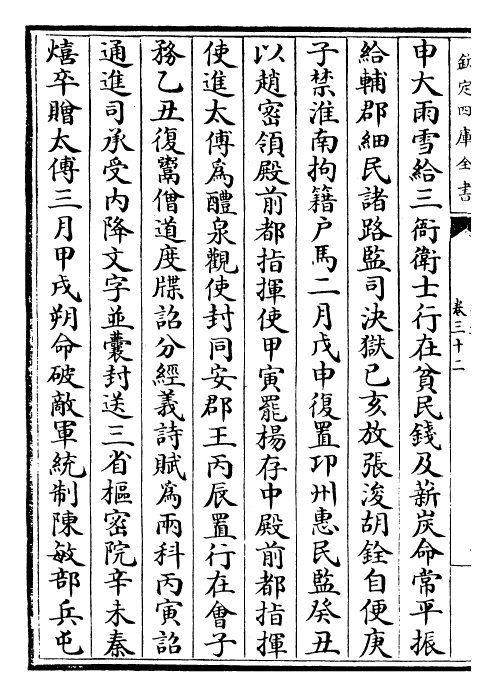 欽定四庫全書
卷三十二
申大雨雪給三衙衛士行在貧民錢及薪炭命常平振
給輔郡細民諸路監司決獄已亥放張浚胡銓自便庚
子禁淮南拘籍户馬二月戊申復置邛州惠民監癸丑
以趙密領殿前都指揮使甲寅罷楊存中殿前都指揮
使進太傅為醴泉觀使封同安郡王丙辰置行在會子
務乙丑復鬻僧道度牒詔分經義詩賦為兩科丙寅詔
通進司承受内降文字並囊封送三省樞密院辛未秦
熺卒贈太傅三月甲戌朔命破敵軍統制陳敏部兵屯